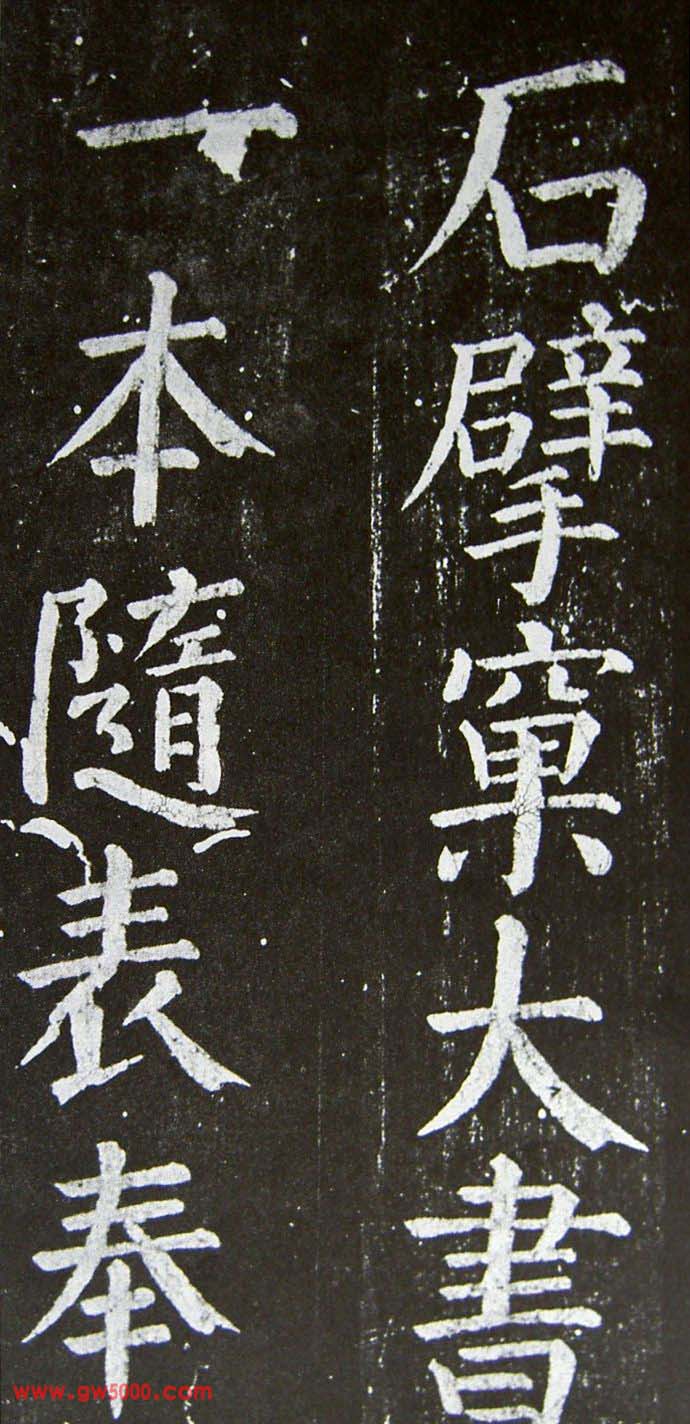 石擘窠大書
一本隨表奉
www.gw5000.com